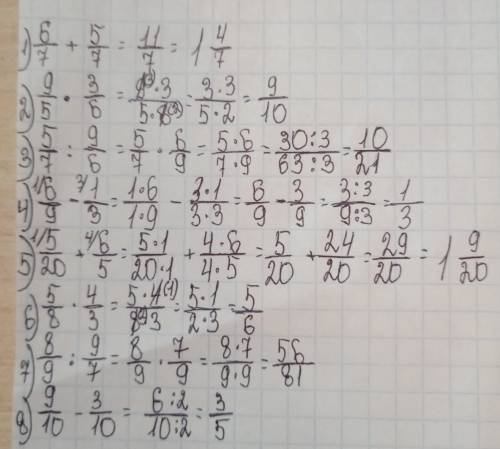 1) 6/7 + 5/7 = 11/7 = 1 4/7
2) 9/5 · 3/6 = 9(3)·3/5·6(2) = 3·3/5·2 = 9/10
3) 5/7 : 9/6 = 5/7 · 6/9 = 5·6/7·9 = 30:3/63:3 = 10/21
4) 1/6/9 - 3/1/3 = 1·6/1·9 - 3·1/3·3 = 6/9 - 3/9 = 3:3/9:3 = 1/3
5) 1/5/20 + 4/6/5 = 5·1/20·1 + 4·6/4·5 = 5/20 + 24/20 = 29/20 = 1 9/20
6) 5/8 · 4/3 = 5·4(1)/8·3 = 5·1/2·3 = 5/6
7) 8/9 : 9/7 = 8/9 · 7/9 = 8·7/9·9 = 56/81
8) 9/10 - 3/10 = 6:2/10:2 = 3/5